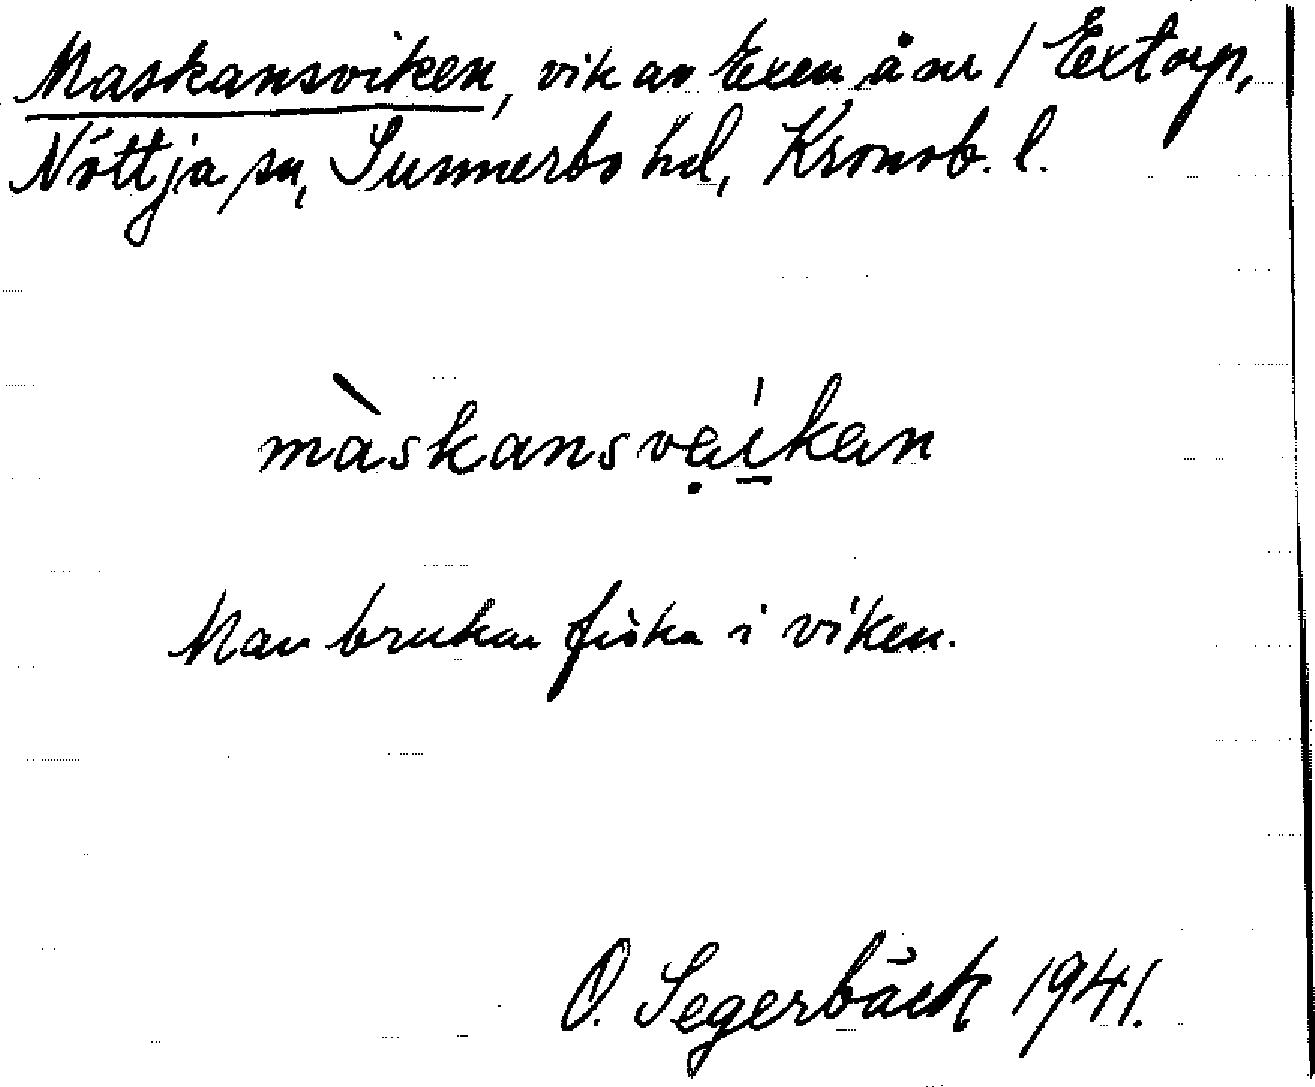 Maskansviken, vik av Exen å su / Extorp,
Nöttja sn, Sunnerbo hd, Kronob. l.
màskansvęi̱kan
Man brukar fiska i viken.
O. Segerbäck 1941.